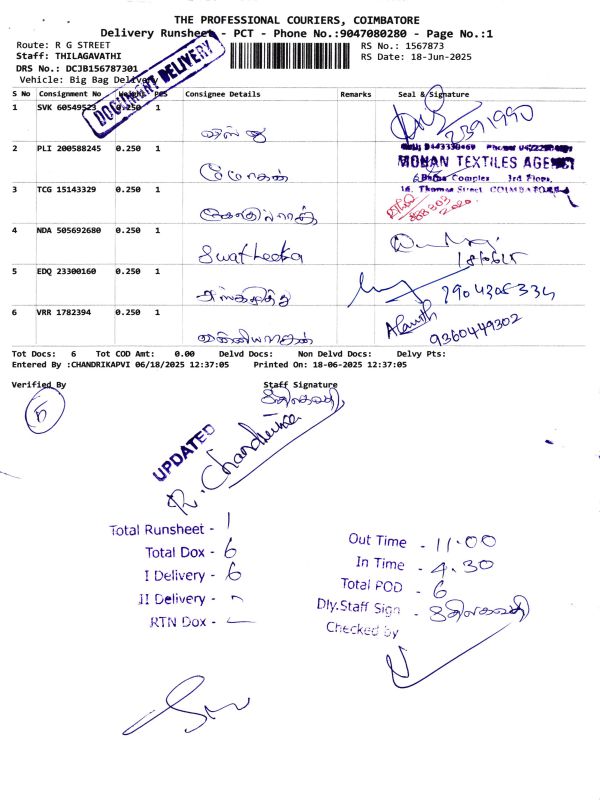 THE PROFESSIONAL COURIERS, COIMBATORE
Delivery Runsheet - PCT - Phone No.:9047080280 - Page No.:1
Route: R G STREET
RS No.: 1567873
Staff: THILAGAVATHI
RS Date: 18-Jun-2025
DRS No.: DCJB156787301
Vehicle: Big Bag Delivery
DOCUMENT DELIVERY
S No Consignment No Weight PCS Consignee Details Remarks Seal & Signature
1 SVK 60549523 0.250 1
2391990
2 PLI 200588245 0.250 1
MOHAN TEXTILES AGENCY
Complex 3rd Floor,
16, Thomas Street COIMBATORE-1
3 TCG 15143329 0.250 1
4 NDA 505692680 0.250 1 Swathecka
18/06/25
5 EDQ 23300160 0.250 1
2904305334
6 VRR 1782394 0.250 1
9360449302
Tot Docs: 6 Tot COD Amt: 0.00 Delvd Docs: Non Delvd Docs: Delvy Pts:
Entered By :CHANDRIKAPVI 06/18/2025 12:37:05 Printed On: 18-06-2025 12:37:05
Verified By Staff Signature
திலகவதி
UPDATED
R. Chandrika
Total Runsheet - 1
Total Dox - 6
I Delivery - 6
II Delivery -
RTN Dox -
Out Time - 11.00
In Time - 4.30
Total POD - 6
Dly.Staff Sign - திலகவதி
Checked by